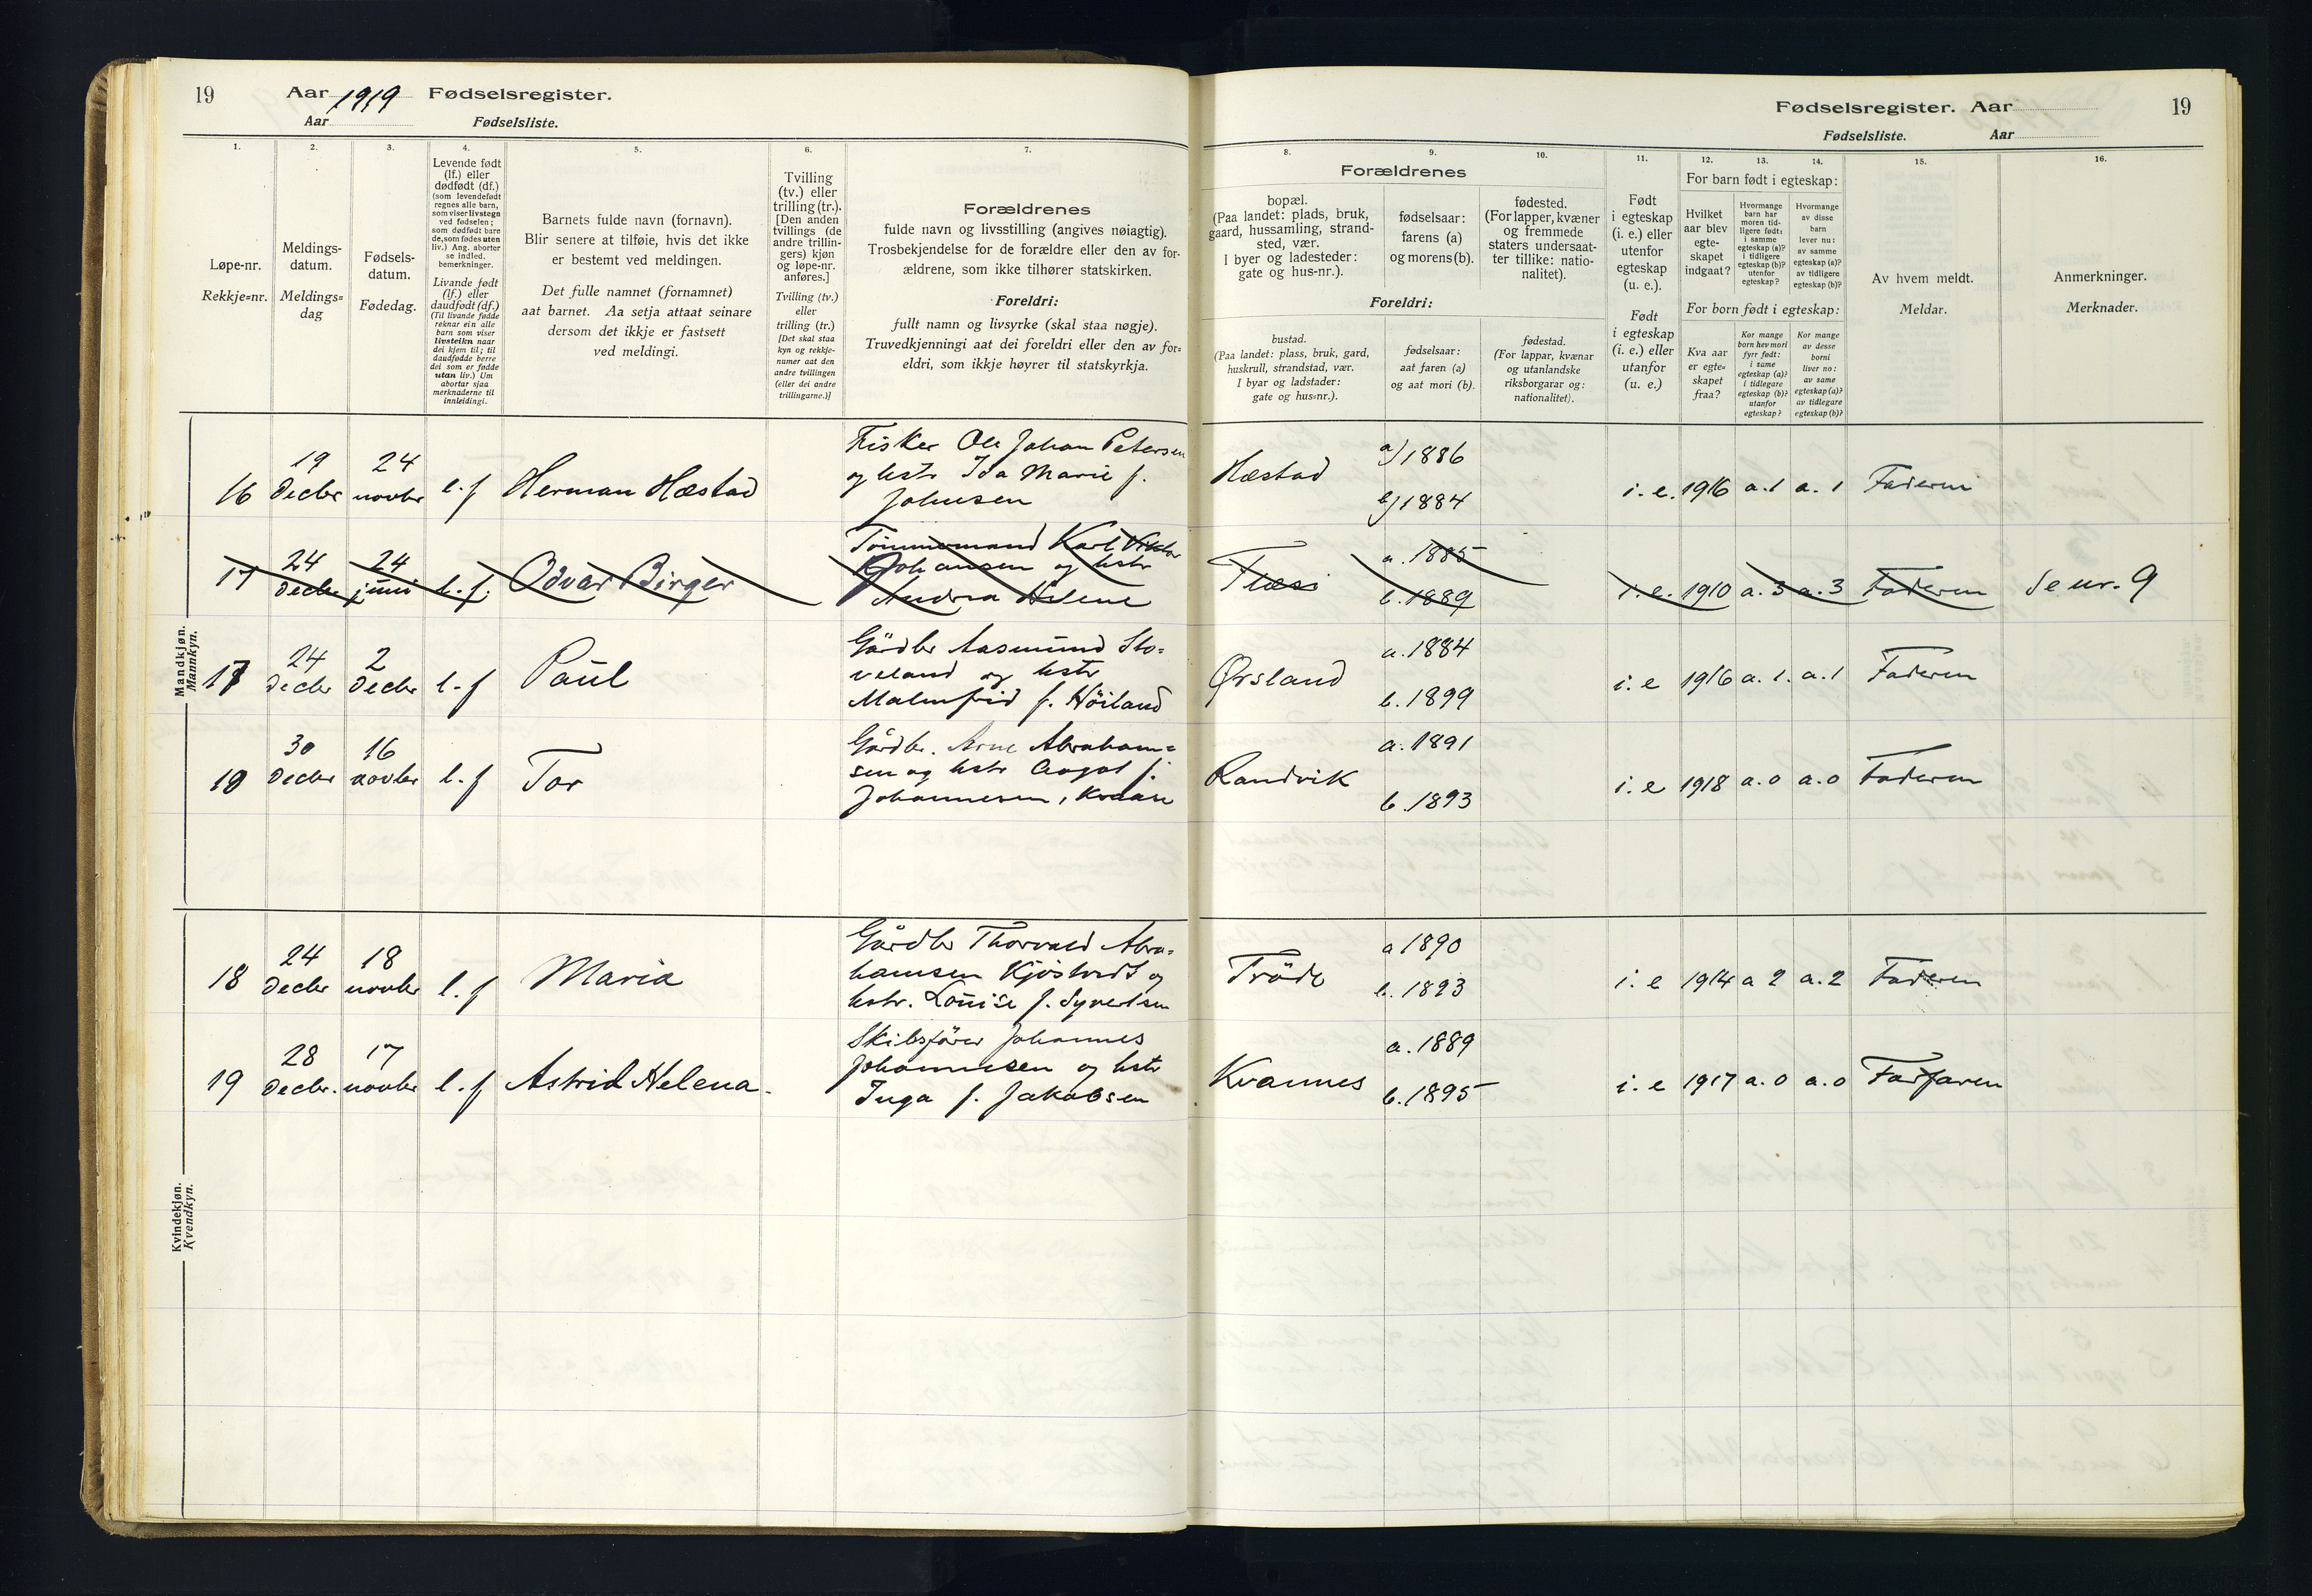 19
Aar 1919 Fødselsregister.
Aar Fødselsliste.
1.
2.
3.
4.
5.
6.
7.
Løpe-nr.
Rekkje=nr.
Meldings-
datum.
Meldings=
dag
Fødsels-
datum.
Fødedag.
Levende født
(lf.) eller
dødfødt (df.)
(som levendefødt
regnes alle barn,
som viser livstegn
ved fødselen;
som dødfødt bare
de, som fødes uten
liv.) Ang. aborter
se indled.
bemerkninger.
Livande født
(lf.) eller
daudfødt (df.)
(Til livande fødde
reknar ein alle
barn som viser
livsteikn naar
dei kjem til; til
daudfødde berre
dei som er fødde
utan liv.) Um
abortar sjaa
merknaderne til
innleidingi.
Barnets fulde navn (fornavn).
Blir senere at tilføie, hvis det ikke
er bestemt ved meldingen.
Det fulle namnet (fornamnet)
aat barnet. Aa setja attaat seinare
dersom det ikkje er fastsett
ved meldingi.
Tvilling
(tv.) eller
trilling (tr.).
[Den anden
tvillings (de
andre trillin-
gers) kjøn
og løpe-nr.
anføres.]
Tvilling (tv.)
eller
trilling (tr.)
[Det skal staa
kyn og rekkje-
numer aat den
andre tvillingen
(eller dei andre
trillingarne.)]
Forældrenes
fulde navn og livsstilling (angives nøiagtig).
Trosbekjendelse for de forældre eller den av for-
ældrene, som ikke tilhører statskirken.
Foreldri:
fullt namn og livsyrke (skal staa nøgje).
Truvedkjenningi aat dei foreldri eller den av for=
eldri, som ikkje høyrer til statskyrkja.
Mandkjøn.
Mannkyn.
16 19 decbr 24 novbr l.f Herman Hæstad
Fisker Ole Johan Petersen
og hstr Ida Marie f.
Johnsen
17 24 decbr 24 juni l.f. Odvar Birger
Tømmermand Karl Viktor
Johansen og hstr
Andrea Helene
17 24 decbr 2 decbr l.f Paul
Gårdbr Aasmund Sto=
veland og hstr
Malmfrid f. Höiland
18 30 decbr 16 novbr l.f Tor
Gårdbr. Arne Abraham=
sen og hstr Aagot f.
Johannesen,
Kvindekjøn.
Kvendkyn.
18 24 decbr 18 novbr l.f Maria
Gårdbr Thorvald Abra=
hamsen Kjöstvedt og
hstr. Louise f. Syvertsen
19 28 decbr. 17 novbr l.f Astrid Helena.
Skibsförer Johannes
Johannesen og hstr
Inga f. Jakobsen
Fødselsregister. Aar
19
Fødselsliste. Aar
8.
9.
10.
11.
12.
13.
14.
15.
16.
Forældrenes
bopæl.
(Paa landet: plads, bruk,
gaard, hussamling, strand-
sted, vær.
I byer og ladesteder:
gate og hus-nr.).
fødselsaar:
farens (a)
og morens (b).
fødested.
(For lapper, kvæner
og fremmede
staters undersaat-
ter tillike: natio-
nalitet).
Foreldri:
bustad.
(Paa landet: plass, bruk, gard,
huskrull, strandstad, vær.
I byar og ladstader:
gate og hus=nr.).
fødselsaar:
aat faren (a)
og aat mori (b).
fødestad.
(For lappar, kvænar
og utanlandske
riksborgarar og:
nationalitet).
Født
i egteskap
(i. e.) eller
utenfor
egteskap
(u. e.).
Født
i egteskap
(i. e.) eller
utanfor
(u. e.)
For barn født i egteskap:
Hvilket
aar blev
egte-
skapet
indgaat?
Hvormange
barn har
moren tid-
ligere født:
i samme
egteskap (a)?
i tidligere
egteskap (b)?
utenfor
egteskap?
Hvormange
av disse
barn
lever nu:
av samme
egteskap (a)?
av tidligere
egteskap (b)?
For born født i egteskap:
Kva aar
er egte=
skapet
fraa?
Kor mange
born hev mori
fyrr født:
i same
egteskap (a)?
i tidlegare
egteskap (b)?
utanfor
egteskap?
Kor mange
av desse
borni
liver no:
av same
egteskap (a)?
av tidlegare
egteskap (b)?
Av hvem meldt.
Meldar.
Anmerkninger.
Merknader.
Hæstad a) 1886 b) 1884 i. e. 1916 a. 1 a. 1 Faderen
Flæsi a. 1885 b. 1889 i. e. 1910 a. 3 a. 3 Faderen Se nr. 9
Ørsland a. 1884 b. 1899 i. e 1916 a. 1. a. 1 Faderen
Randvik a. 1891 b. 1893 i. e 1918 a. 0 a. 0 Faderen
Tröde a 1890 b. 1893 i. e 1914 a 2 a. 2 Faderen
Kvannes a. 1889 b. 1895 i. e 1917 a. 0 a. 0 Farfaren